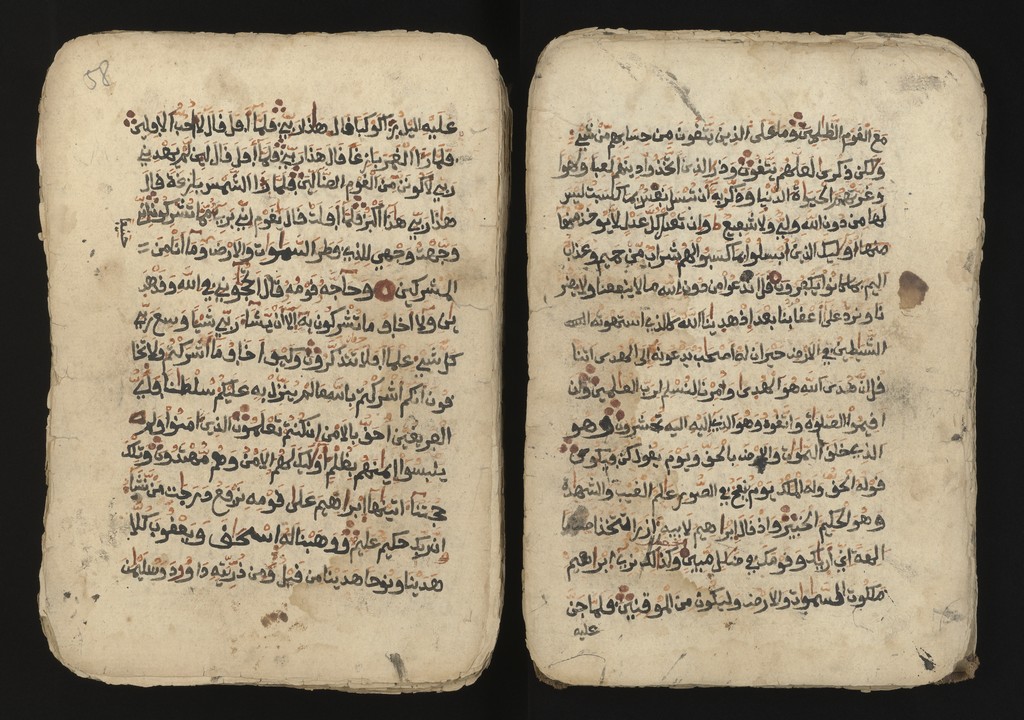 مع القوم الظلمين وما على الذين يتقون من حسابهم من شيء
ولكن ذكرى لعلهم يتقون وذر الذين اتخذوا دينهم لعبا ولهوا
وغرتهم الحيوة الدنيا وذكر به ان تبسل نفس بما كسبت ليس
لها من دون الله ولي ولا شفيع وان تعدل كل عدل لا يوخذ منها
اوليك الذين ابسلوا بما كسبوا لهم شراب من حميم وعذاب
اليم بما كانوا يكفرون قل اندعوا من دون الله ما لا ينفعنا ولا يضر
نا ونرد على اعقابنا بعد اذ هدينا الله كالذي استهوته
الشيطين في الارض حيران له اصحب يدعونه الى الهدى ائتنا
قل ان هدى الله هو الهدى وامرنا لنسلم لرب العلمين وان
اقيموا الصلوة واتقوه وهو الذي اليه تحشرون وهو
الذي خلق السموت والارض بالحق ويوم يقول كن فيكون
قوله الحق وله الملك يوم ينفخ في الصور علم الغيب والشهدة
وهو الحكيم الخبير واذ قال ابراهيم لابيه ازر اتتخذ اصنما
الهة اني اريك وقومك في ضلل مبين وكذلك نري ابراهيم
ملكوت السموت والارض وليكون من الموقنين فلما جن
عليه
58
عليه اليل را كوكبا قال هذا ربي فلما افل قال لا احب الافلين
فلما را القمر بازغا قال هذا ربي فلما افل قال لين لم يهدني
ربي لاكونن من القوم الضالين فلما را الشمس بازغة قال
هذا ربي هذا اكبر فلما افلت قال يقوم اني بري مما تشركون اني
وجهت وجهي للذي فطر السموت والارض وما انا من
حنيفا
المشركين وحاجه قومه قال اتحجوني في الله وقد هد
ين ولا اخاف ما تشركون به الا ان يشاء ربي شيا وسع ربي
كل شيء علما افلا تتذكرون وكيف اخاف ما اشركتم ولا تخا
فون انكم اشركتم بالله ما لم ينزل به عليكم سلطنا فاي
الفريقين احق بالامن ان كنتم تعلمون الذين امنوا ولم
يلبسوا ايمنهم بظلم اوليك لهم الامن وهم مهتدون وتلك
حجتنا اتينها ابراهيم على قومه نرفع درجت من نشاء
ان ربك حكيم عليم ووهبنا له اسحاق ويعقوب كلا
هدينا ونوحا هدينا من قبل ومن ذريته داوود وسليمن